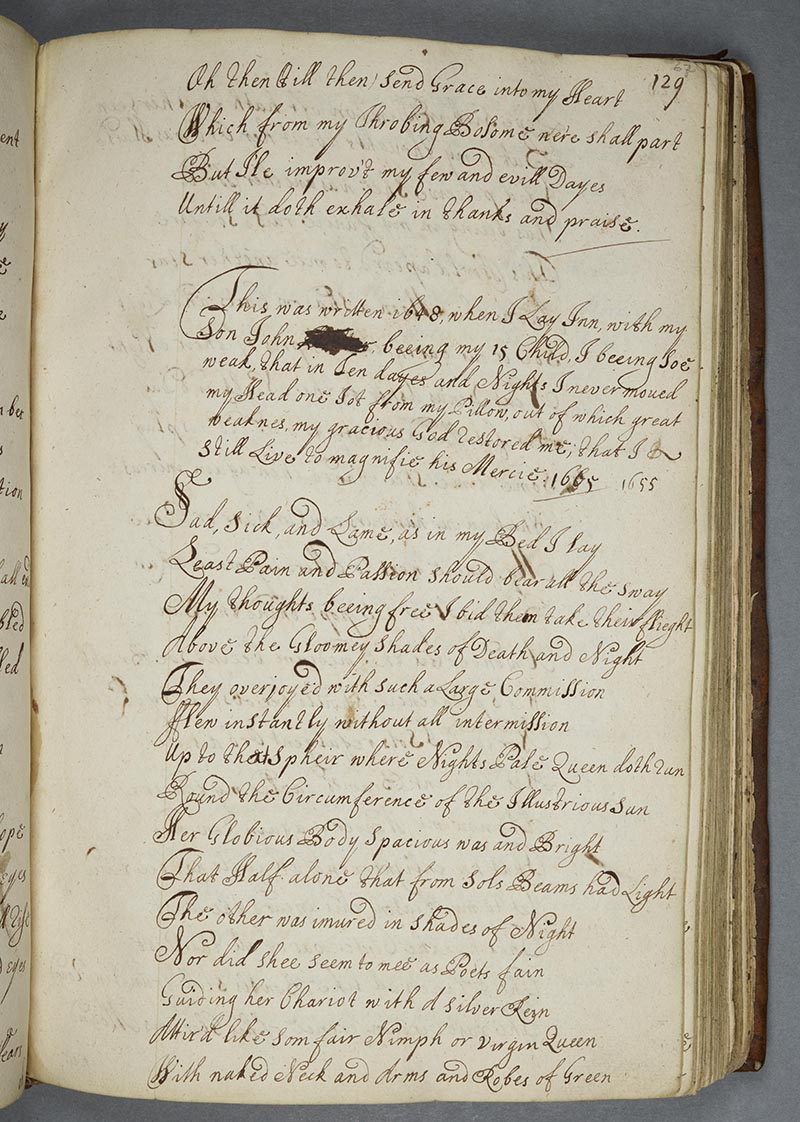 67
129
Oh then (till then) send Grace into my Heart
Which from my Throbing Bosome ne're shall part
But I'le improv't my few and evill Dayes
Untill it doth exhale in thanks and praise.
This was written 1648, when I Lay Inn, with my
Son John beeing my 15 Child, I beeing Soe
weak, that in Ten dayes and Nights I never moved
my Head one Jot from my Pillow, out of which great
weaknes, my gracious God restored me; that I
still Live to magnifie his Mercie: 1665 1655
Sad, Sick, and Lame, as in my Bed I lay
Least Pain and Passion should bear all the sway
My thoughts beeing free I bid them take their flieght
Above the Gloomey shades of Death and Night
They overjoyed with such a Large Commission
fflew instantly without all intermission
Up to that Spheir where Nights Pale Queen doth run
Round the Circumference of the Illustrious Sun
Her Globious Body spacious was and Bright
That Half alone that from Sols Beams had Light
The other was imured in shades of Night
Nor did shee seem to mee as Poets fain
Guiding her Chariot with a silver Rein
Attir'd like som fair Nimph or Virgin Queen
With naked Neck and Arms and Robes of Green
ent
tion
all
bled
led
ope
eyes
eyes
ears